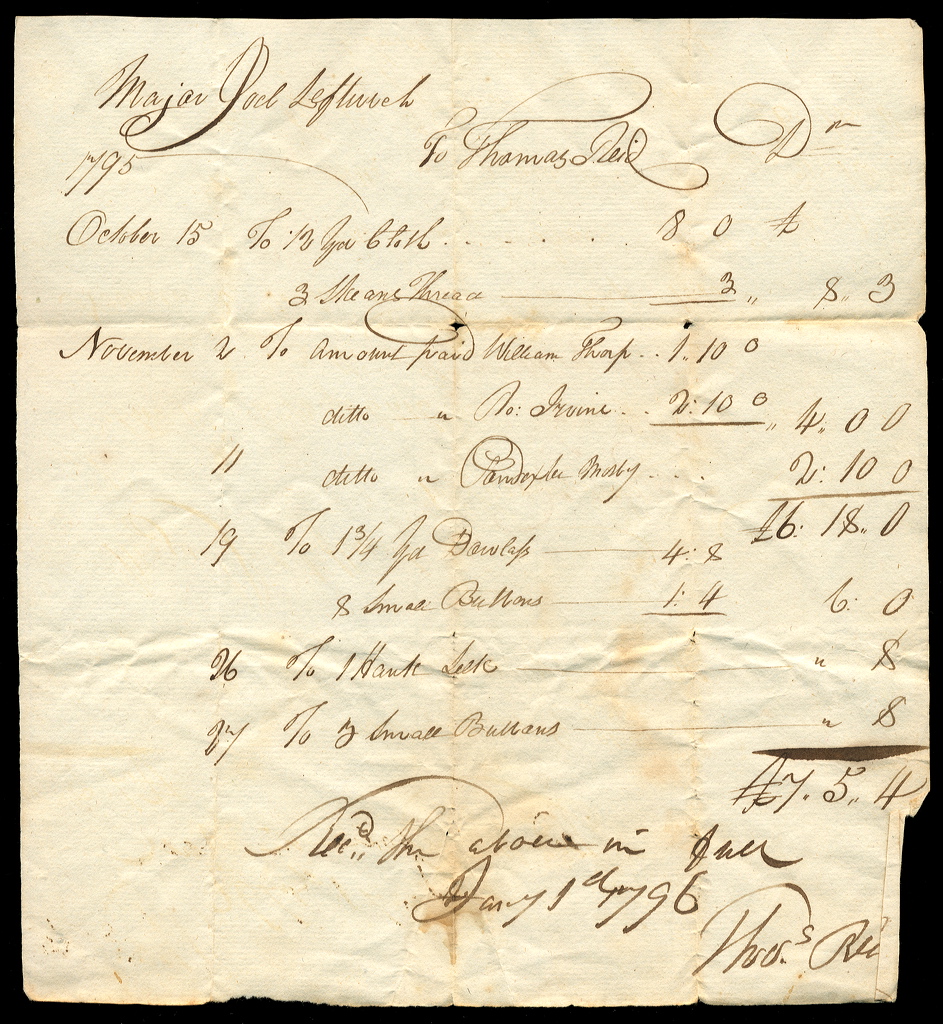 Major Joel Leftwich
To Thomas Reid Dr
1795
October 15 To 12 Yd Cloth . . . . . . . 8 0 £
3 Skeans Thread 3 " 8 " 3
November 2 To amount paid William Thorp . . 1 " 10 0
ditto " Ro: Irvine . . 2: 10 0 " 4 " 0 0
11 ditto " Poindexter Mosby . . . . 2: 10 0
£6: 18 " 0
19 To 1 3/4 Yd Dowlass 4: 8
8 Small Buttons 1: 4 6: 0
26 To 1 Hank Silk " 8
27 To 3 Small Buttons " 8
£7 " 5 " 4
Recd the above in full
Jany 1d 1796
Thos. Rei